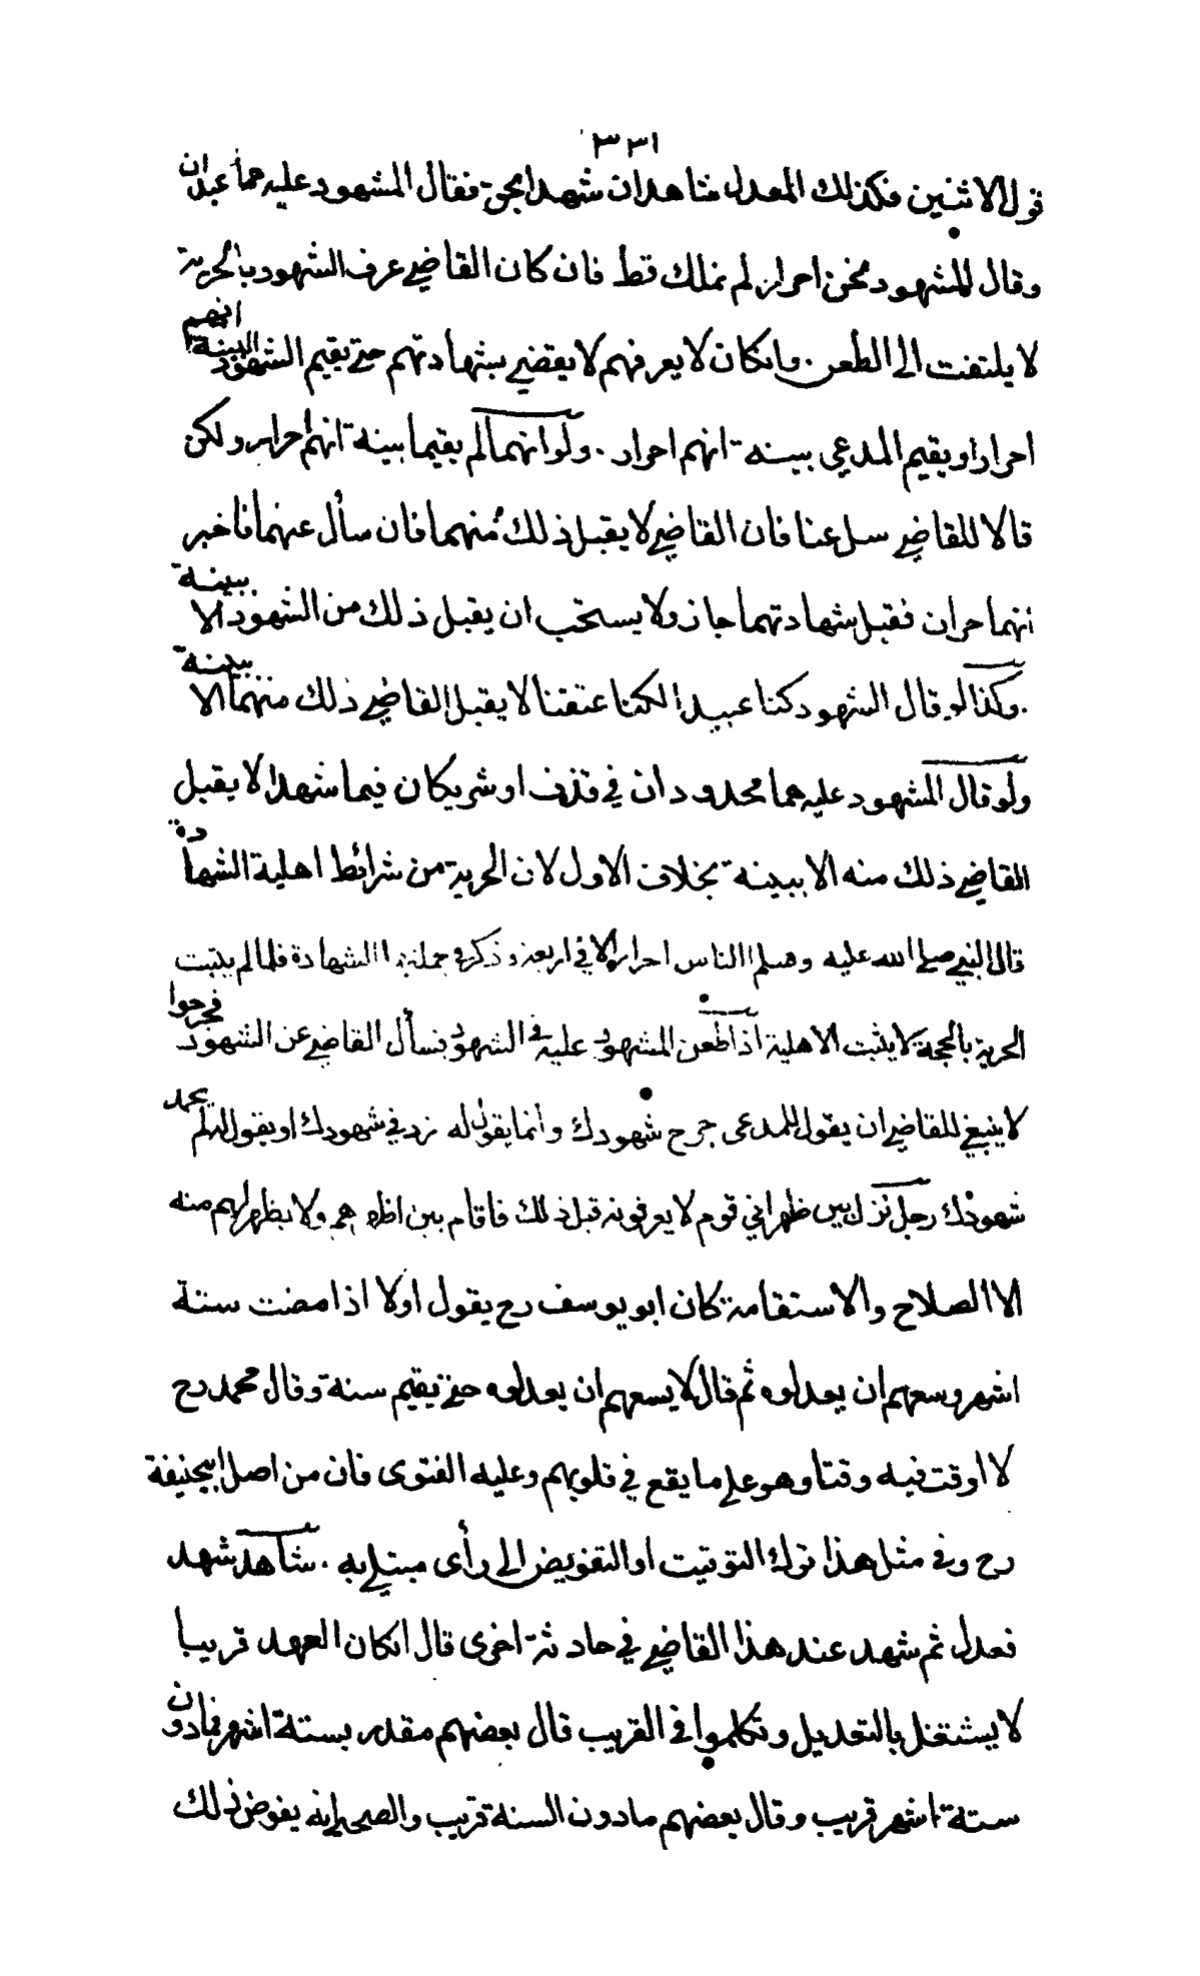 ٣٣١
قول الاثنين فكذلك المعدل شاهدان شهدا بحق فقال المشهود عليه هما عبدان
وقال المشهود نحن احرار لم نملك قط فان كان القاضي عرف الشهود بالحرية
لا يلتفت الى الطعن . وان كان لا يعرفهم لا يقضي بشهادتهم حتى يقيم الشهود البينة انهم
احرارا ويقيم المدعي بينة انهم احرار . ولو انهما لم يقيما بينة انهم احرار ولكن
قالا للقاضي سل عنا فان القاضي لا يقبل ذلك منهما فان سأل عنهما فاخبر
انهما حران فقبل شهادتهما جاز ولا يستحب ان يقبل ذلك من الشهود الا ببينة
. وكذا لو قال الشهود كنا عبيدا لكنا عتقنا لا يقبل القاضي ذلك منهما الا ببينة
ولو قال المشهود عليه هما محدودان في قذف او شريكان فيما شهدا لا يقبل
القاضي ذلك منه الا ببينة بخلاف الاول لان الحرية من شرائط اهلية الشهادة
قال النبي صلى الله عليه وسلم الناس احرار الا في اربعة وذكر في جملتها الشهادة فلما لم يثبت
الحرية بالحجة لا يثبت الاهلية اذا طعن المشهود عليه في الشهود فسأل القاضي عن الشهود فجرحوا
لا ينبغي للقاضي ان يقول للمدعى جرح شهودك وانما يقول له زد في شهودك او يقول له لم يحمد
شهودك رجل نزل بين ظهراني قوم لا يعرفونه قبل ذلك فاقام بين اظهرهم ولا يظهر لهم منه
الا الصلاح والاستقامة كان ابو يوسف رح يقول اولا اذا مضت ستة
اشهر وسعهم ان يعدلوه ثم قال لا يسعهم ان يعدلوه حتى يقيم سنة وقال محمد رح
لا اوقت فيه وقتا وهو على ما يقع في قلوبهم وعليه الفتوى فان من اصل ابيحنيفة
رح وفي مثل هذا ترك التوقيت او التفويض الى رأى مبتلى به . شاهد شهد
فعدل ثم شهد عند هذا القاضي في حادثة اخرى قال ان كان العهد قريبا
لا يشتغل بالتعديل وتكلموا في القريب قال بعضهم مقدر بستة اشهر فما دون
ستة اشهر قريب وقال بعضهم ما دون السنة قريب والصحيح انه يفوض ذلك